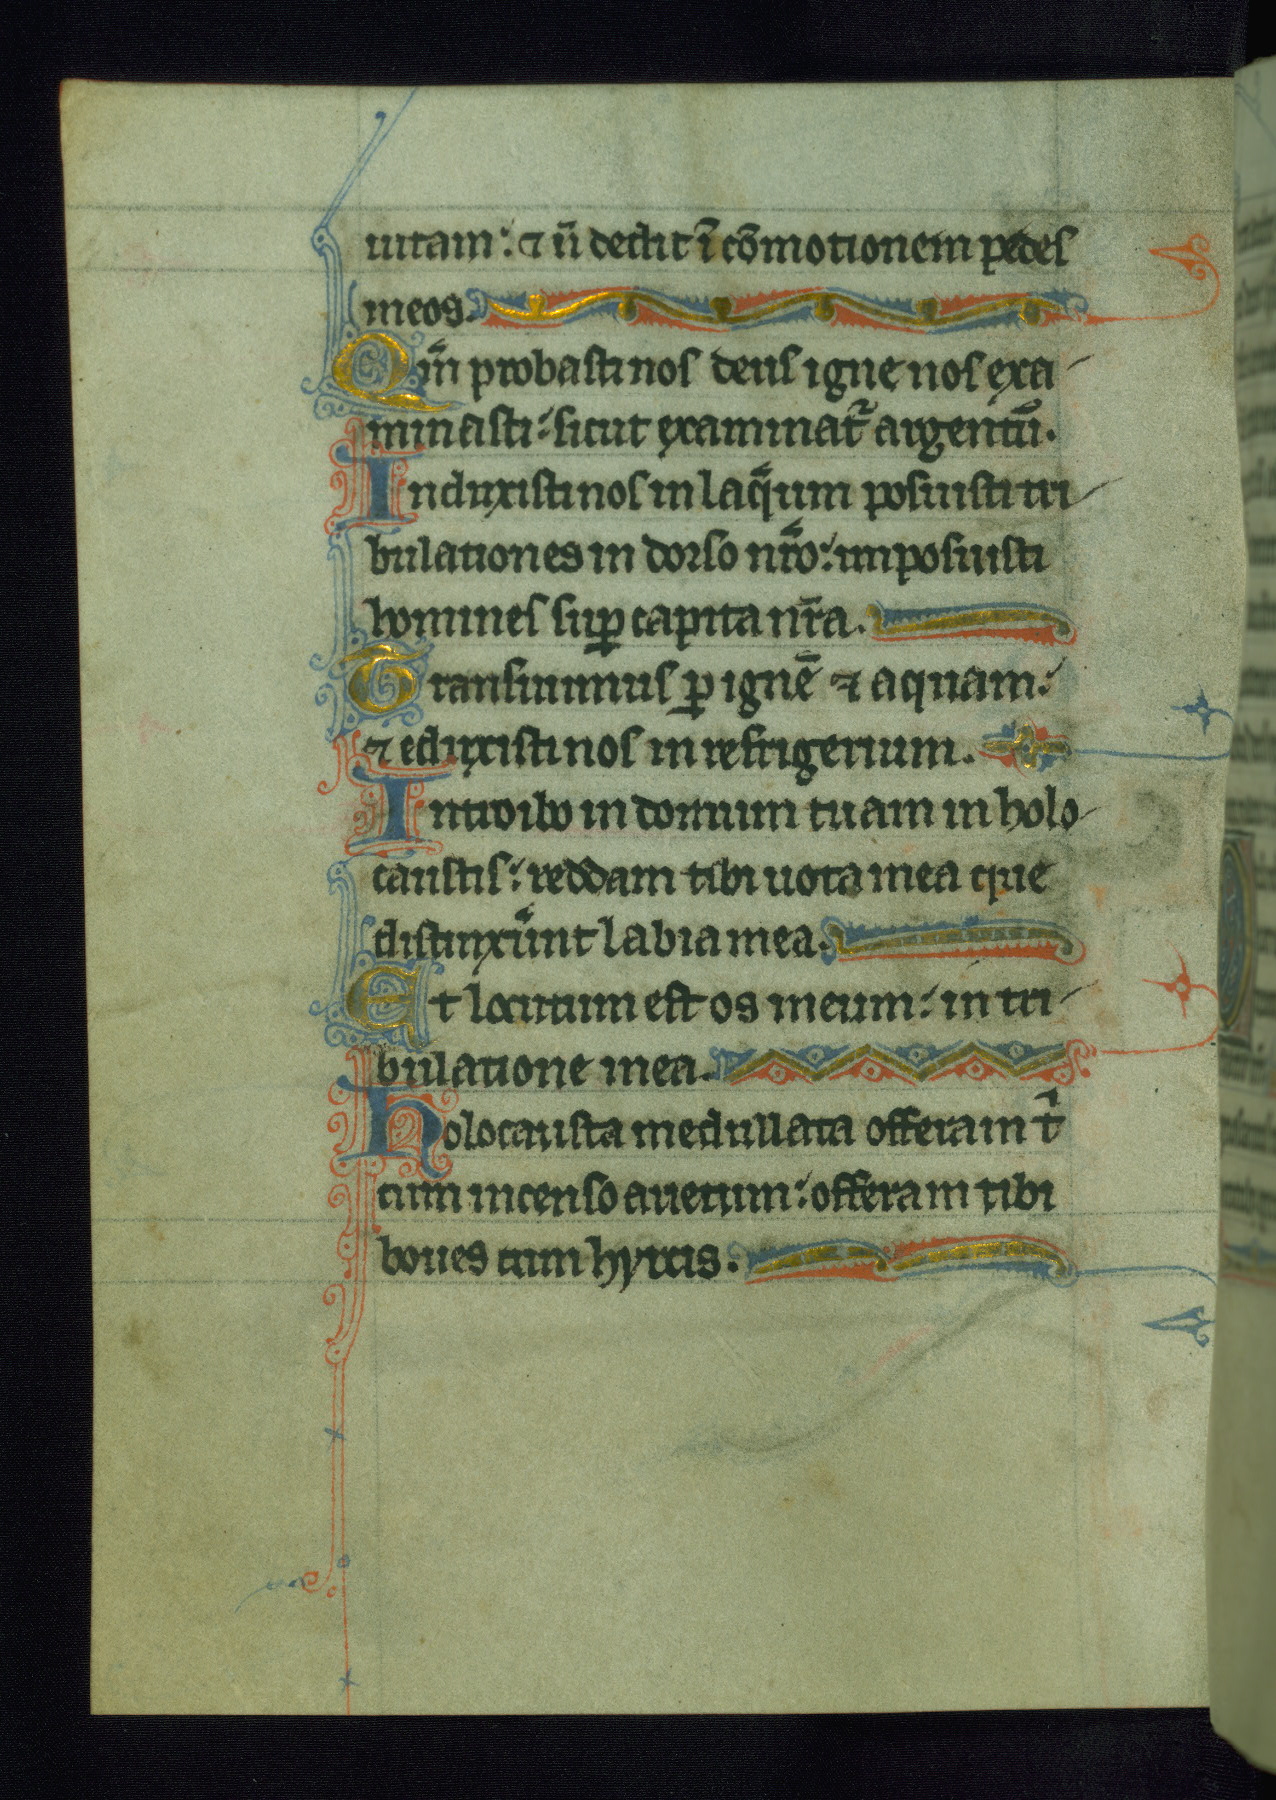 uitam: ⁊ n̄ dedit ī cōmotionem pedes
meos.
Qm̄ probasti nos deus igne nos exa
minasti: sicut examinat᷑ argentū.
Induxisti nos in laq̄um posuisti tri
bulationes in dorso nr̄o: imposuisti
homines suꝑ capita nr̄a.
Transiuimus ꝑ ignē ⁊ aquam:
⁊ eduxisti nos in refrigerium.
Introibo in domum tuam in holo
caustis: reddam tibi uota mea que
distinxūnt labia mea.
Et locutum est os meum: in tri
bulatione mea.
Holocausta medullata offeram t̄
cum incenso arietum: offeram tibi
boues cum hyrcis.